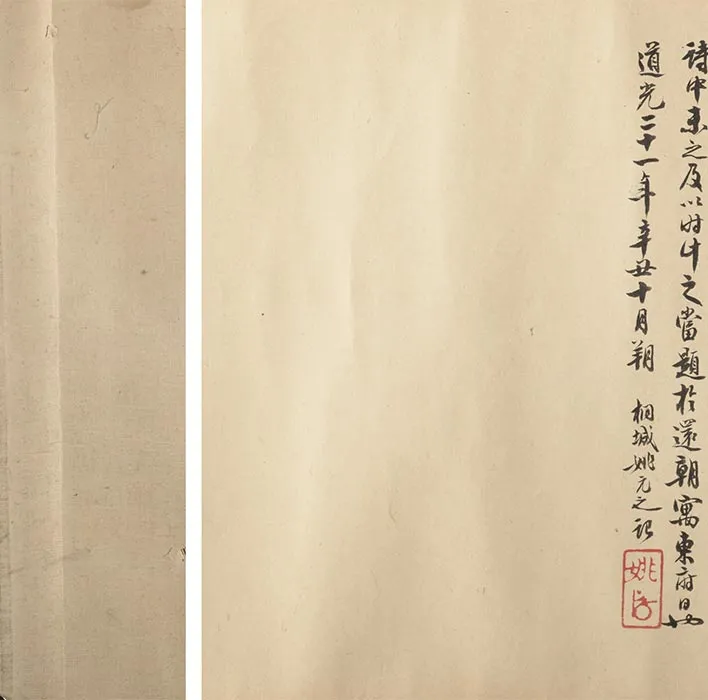 詩中未之及以时计之當題於還朝寓東府日也
道光二十一年辛丑十月朔 桐城姚元之記